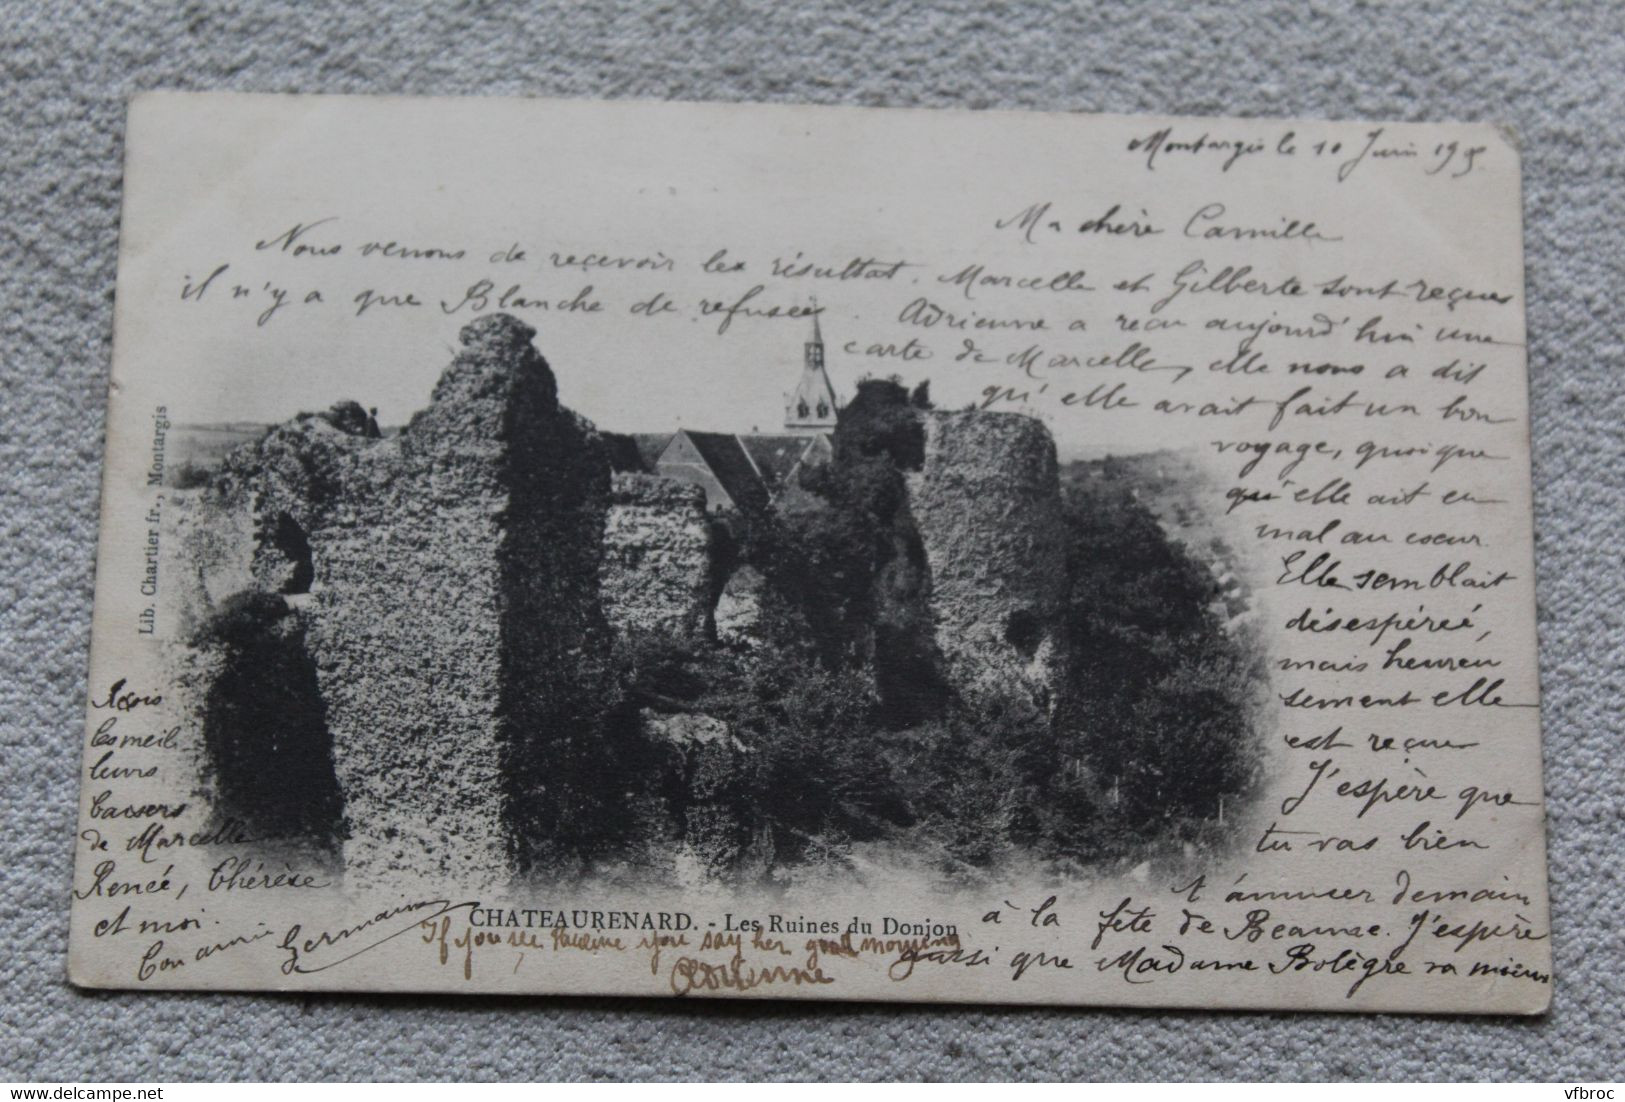 Montargis le 10 Juin 195
Ma chère Camille
Nous venons de reçevoir les résultat. Marcelle et Gilberte sont reçues
il n'y a que Blanche de refusée. Adrienne a reçu aujourd'hui une
carte de Marcelle, elle nous a dit
qu'elle avait fait un bon
voyage, quoique
qu'elle ait eu
mal au cœur
Elle semblait
désespérée,
mais heureu
sement elle
est reçue
J'espère que
tu vas bien
t'amuser demain
à la fête de Beaune. J'espère
aussi que Madame Bolègre va mieux
Reçois
les meil
leurs
baisers
de Marcelle
Renée, Thérèse
et moi.
Ton amie Germaine
Lib. Chartier fr., Montargis
CHATEAURENARD. - Les Ruines du Donjon
If you see Pauline you say her good morning
Adrienne
vfbroc